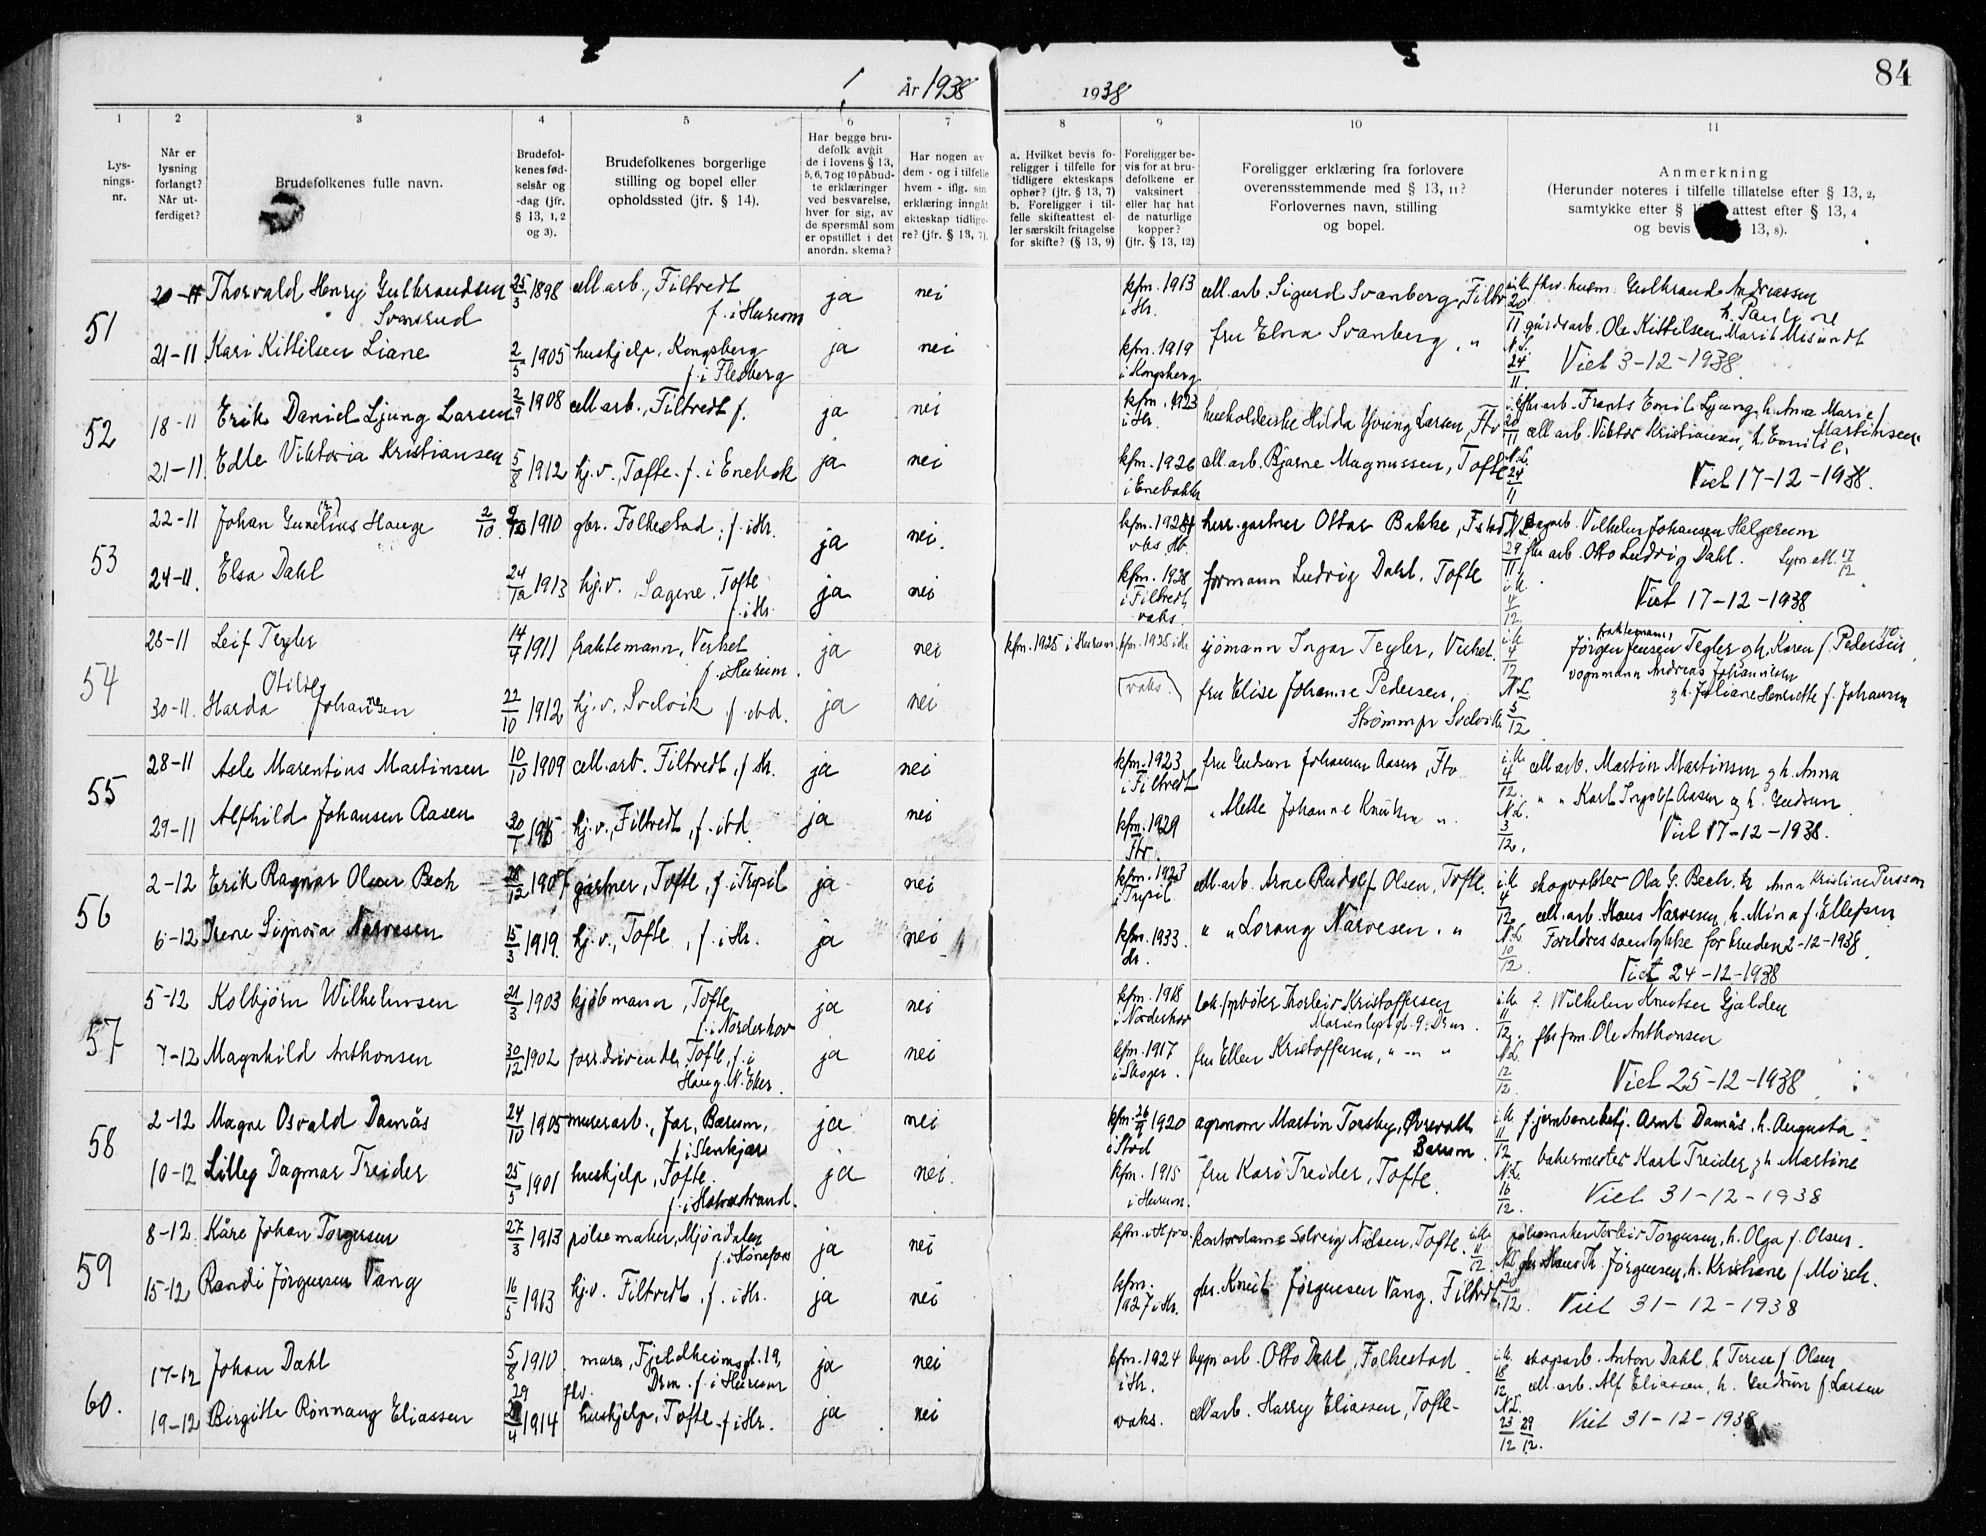 84
År 1938
1938
1
2
3
4
5
6
7
8
9
10
11
Lys-
nings-
nr.
Når er
lysning
forlangt?
Når ut-
ferdiget?
Brudefolkenes fulle navn.
Brudefol-
kenes fød-
selsår og
-dag (jfr.
§ 13, 1, 2
og 3).
Brudefolkenes borgerlige
stilling og bopel eller
opholdssted (jfr. § 14).
Har begge bru-
defolk avgit
de i lovens § 13,
5, 6, 7 og 10 påbud-
te erklæringer
ved besvarelse,
hver for sig, av
de spørsmål som
er opstillet i det
anordn. skema?
Har nogen av
dem - og i tilfelle
hvem - iflg. sin
erklæring inngåt
ekteskap tidlige-
re? (jfr. § 13, 7).
a. Hvilket bevis fo-
religger i tilfelle for
tidligere ekteskaps
ophør? (jfr. § 13, 7)
b. Foreligger i til-
felle skifteattest el-
ler særskilt fritagelse
for skifte? (§ 13, 9)
Foreligger be-
vis for at bru-
defolkene er
vaksinert
eller har hat
de naturlige
kopper?
(jfr. § 13, 12)
Foreligger erklæring fra forlovere
overensstemmende med § 13, 11?
Forlovernes navn, stilling
og bopel.
Anmerkning
(Herunder noteres i tilfelle tillatelse efter § 13, 2,
samtykke efter § attest efter § 13, 4
og bevis 13, 8).
51
20-11 Thorvald Henry Gulbrandsen 25/3 1898 cell.arb., Filtvedt ja nei kfm. 1913 cell.arb. Sigurd Svanberg, Filtv. Gulbrand Andreassen
Svansrud f. i Hurum i Hr. h. Pauline
21-11 Kari Kittilsen Liane 2/5 1905 hushjelp, Kongsberg ja nei kfm. 1919 fru Elna Svanberg, " gårdsarb. Ole Kittilsen, Marit
f. i Flesberg i Kongsberg Viet 3-12-1938.
52
18-11 Erik Daniel Ljung Larsen 2/9 1908 cell arb., Filtvedt f. ja nei kfm. 1923 husholderske Hilda Larsen, Ftv. arb. Frants Emil Ljung, h. Anna Marie f.
i Hr. Martinsen
21-11. Edle Viktoria Kristiansen 5/8 1912 hj.v., Tofte. f. i Enebak ja nei kfm. 1926 cell.arb. Bjarne Magnussen, Tofte cell arb. Viktor Kristiansen, h. Emilie
i Enebakk Viet 17-12-1938.
53
22-11 Johan Hauge 2/10 1910 gbr. Folkestad; f. i Hr. ja nei. herr. gartner Ottar Bakke, Vilhelm Johansen Helgerum
24-11. Elsa Dahl 24/12 1913 hj.v. Sagene, Tofte ja nei kfm. 1928 formann Ludvig Dahl, Tofte arb. Otto Ludvig Dahl. 17/12
f. i Hr. i Filtvedt
vaks. Viet 17-12-1938
54
28-11 Leif Tegler 14/9 1911 fraktemann, Verket ja nei kfm. 1925 i Hurum sjømann Ingar Tegler, Verket. fraktemann,
f. i Hurum. Jørgen Jensen Tegler og h. Karen f. Pedersen
Otilie vaks. vognmann Andreas Johannesen
30-11. Harda Johansen 22/10 1912 hj.v. Svelvik f. ibd. ja nei fru Elise Johanne Pedersen, og h. Juliane Henriette f. Johansen
Strømmgt Svelvik
55
28-11 Asle Marentius Martinsen 10/10 1909 cell.arb. Filtvedt, f. Hr. ja nei kfm. 1923 fru Gudrun Johansen Aasen, Ftv. cell arb. Martin Martinsen og h. Anna
i Filtvedt
29-11 Alfhild Johansen Aasen hj.v., Filtvedt, f. ibd. ja nei kfm. 1929 " Mette Johanne Knutsen " " " Karl Ingolf Aasen og h. Gudrun
Ftv. Viet 17-12-1938.
56
2-12 Erik Ragnar Olsen Bech 1907 gartner, Tofte, f. i Trysil ja nei kfm. 1923 cell arb. Arne Rudolf Olsen, Tofte. skogvokter Ola G. Bech, h. Anna Kristine Persson
i Trysil
6-12 Irene Signora Narvesen 15/3 1919. hj.v., Tofte, f. i Hr. ja nei kfm. 1933. " " Lorang Narvesen. " cell.arb. Hans Narvesen, h. Mina f. Ellefsen
Hr. Foreldres samtykke for bruden 2-12-1938.
Viet 24-12-1938
57
5-12 Kolbjørn Wilhelmsen 21/3 1903 kjøbmann, Tofte ja nei kfm. 1918 Thorleiv Kristoffersen f. Wilhelm Knutsen Gjalden
f. i Norderhov i Norderhov Drm.
7-12 Magnhild Anthonsen 30/12 1902 forr.drivende, Tofte, f. i ja nei kfm. 1917 fru Ellen Kristoffersen, " - " " fbr.fm. Ole Anthonsen
Haug. N. Eker. i Skoger. Viet 25-12-1938
58
2-12 Magne Osvald Damås 24/10 1905 murerarb., Jar, Bærum, ja nei kfm. 26/9 1920 agronom Martin Torsby, Øvrevoll f. jernbanebetj. Arnt Damås, h. Augusta
f. i Stenkjær i Stod Bærum.
10-12 Lilleg Dagmar Treider 25/5 1901 hushjelp, Tofte. ja nei. kfm. 1915 fru Kari Treider, Tofte. bakermester Karl Treider, og h. Martine
f. i Holmestrand. i Hurum. Viet 31-12-1938
59
8-12. Kåre Johan Torgersen 27/3 1913 pølsemaker, Mjøndalen ja nei kontordame Solveig Nielsen, Tofte. pølsemaker Torleiv Torgersen, h. Olga f. Olsen.
f. i Hønefoss
15-12 Randi Jørgensen Vang 16/5 1913 hj.v. Filtvedt, f. i Hr. ja nei kfm. gbr. Knut Jørgensen Vang, Filtvedt. gbr. Hans Th. Jørgensen, h. Kristiane f. Mørch.
1927 i Hr. Viet 31-12-1938
60.
17-12 Johan Dahl 5/8 1910. murer, Fjeldheimsgt. 19, ja nei kfm. 1924 arb. Otto Dahl, Folkestad skogarb. Anton Dahl, h. Terese f. Olsen
Drm. f. i Hurum i Hr.
19-12 Birgitte Rønnaug Eliassen 1914 hushjelp, Tofte. f. i Hr. ja nei vaks. cell arb. Harry Eliassen, Tofte. cell.arb. Alf Eliassen, h. Gudrun f. Larsen
Viet 31-12-1938